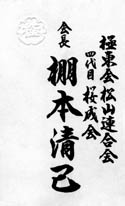 極東会松山連合会
四代目桜成会
会長
棚本清己